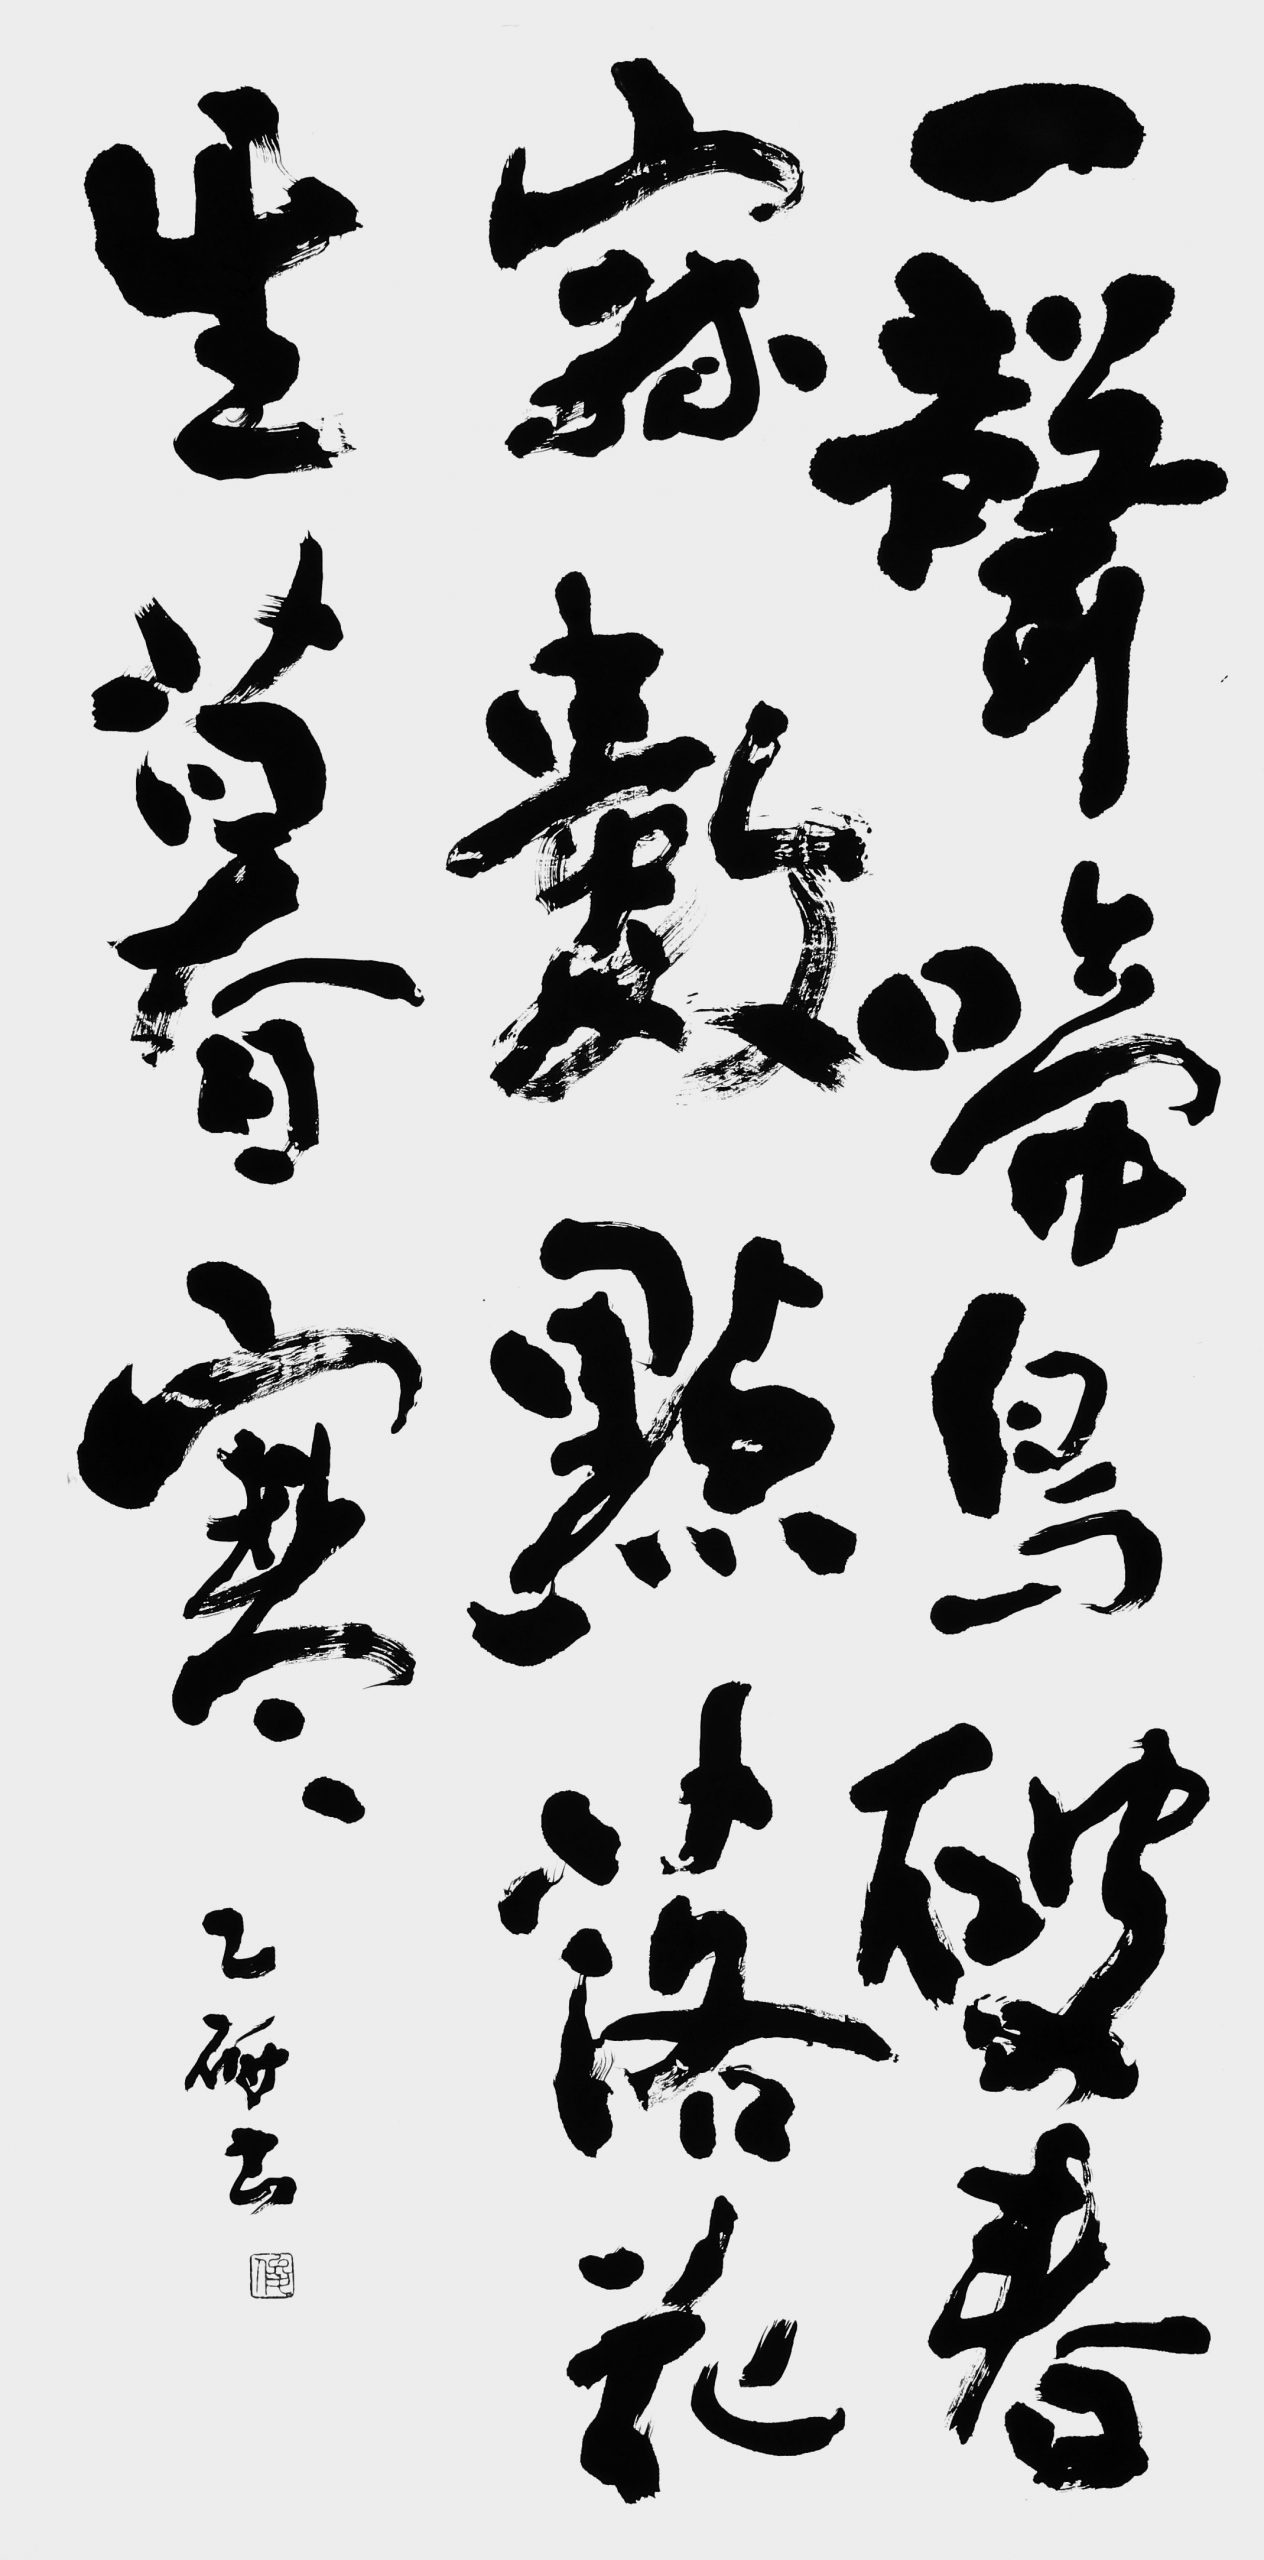 一聲啼鳥破春
寂數點落花
生暮寒
乙研書